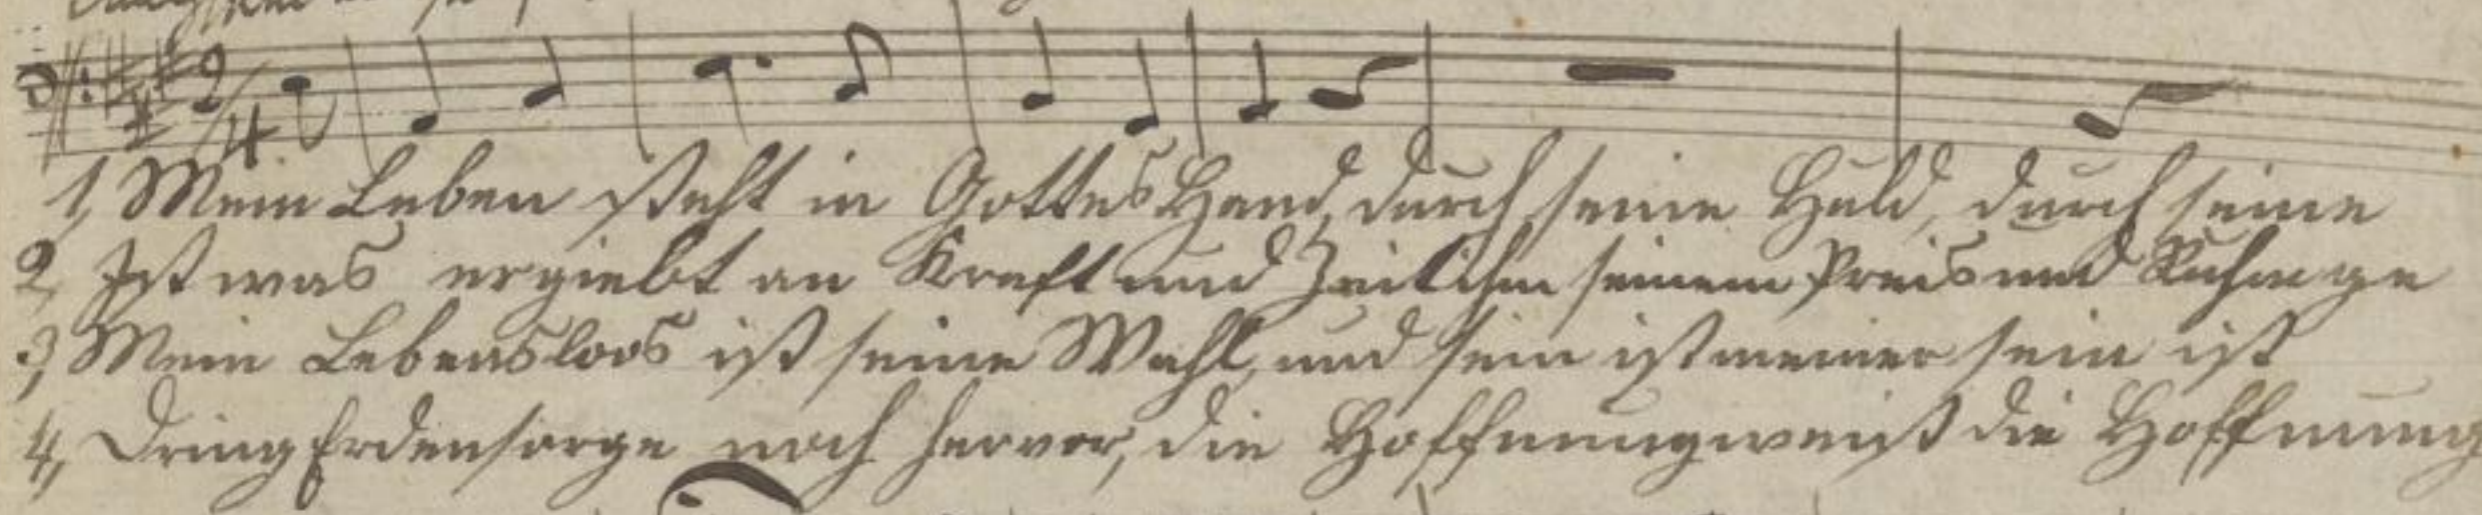 1, Mein Leben steht in Gottes Hand, durch seine Huld, durch seine
2, Ist was ergiebt an Kraft und Zeit ihm seinem Preis und Ruhm ge
3, Mein Lebensloos ist seine Wahl, und sein ist meiner sein ist
4, Dring Erdensorge noch hervor, die Hoffnung weist die Hoffnung